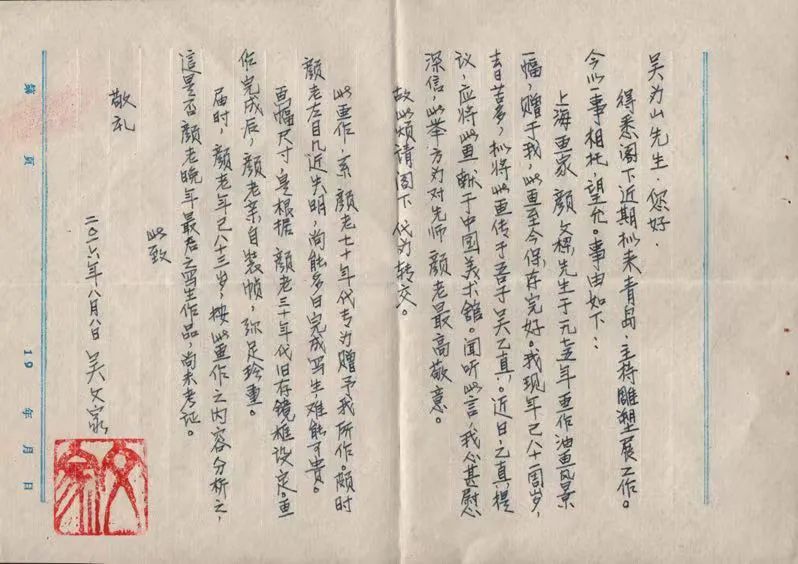 吴为山先生：您好.
得悉阁下近期拟来青岛，主持雕塑展工作。
今以一事相托，望允。事由如下：
上海画家颜文樑先生于一九七五年画作油画风景
一幅，赠于我，此画至今保存完好。我现年已八十一周岁，
去日苦多，拟将此画传于吾子吴乙真。近日，乙真提
议，应将此画献于中国美术馆。闻听此言，我心甚慰
深信，此举方为对先师颜老最高敬意。
故此烦请阁下代为转交。
此画作，系颜老七十年代专为赠予我所作。颇时
颜老左目几近失明，尚能多日完成写生，难能可贵。
画幅尺寸，是根据颜老三十年代旧存镜框设定。画
作完成后，颜老亲自装帧，弥足珍重。
届时，颜老年已八十三岁，按此画作之内容分析之，
這是否颜老晚年最后之写生作品，尚未考证。
此致
敬礼
二〇一六年八月八日 吴文家
第 页
19 年 月 日